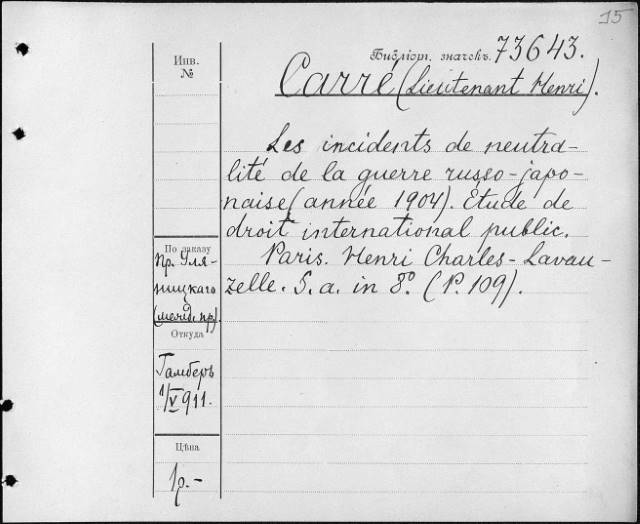 15
Инв.
№
Библіот. значекъ 73643.
Carré (Lieutenant Henri).
Les incidents de neutra-
lité de la guerre russo-japo-
naise (année 1904). Etude de
droit international public.
Paris. Henri Charles-Lavau-
zelle. S. a. in 8°. (P. 109).
По заказу
пр. Гля-
ницкаго
Откуда
Гамберъ
1/V 911.
Цѣна
1р.-